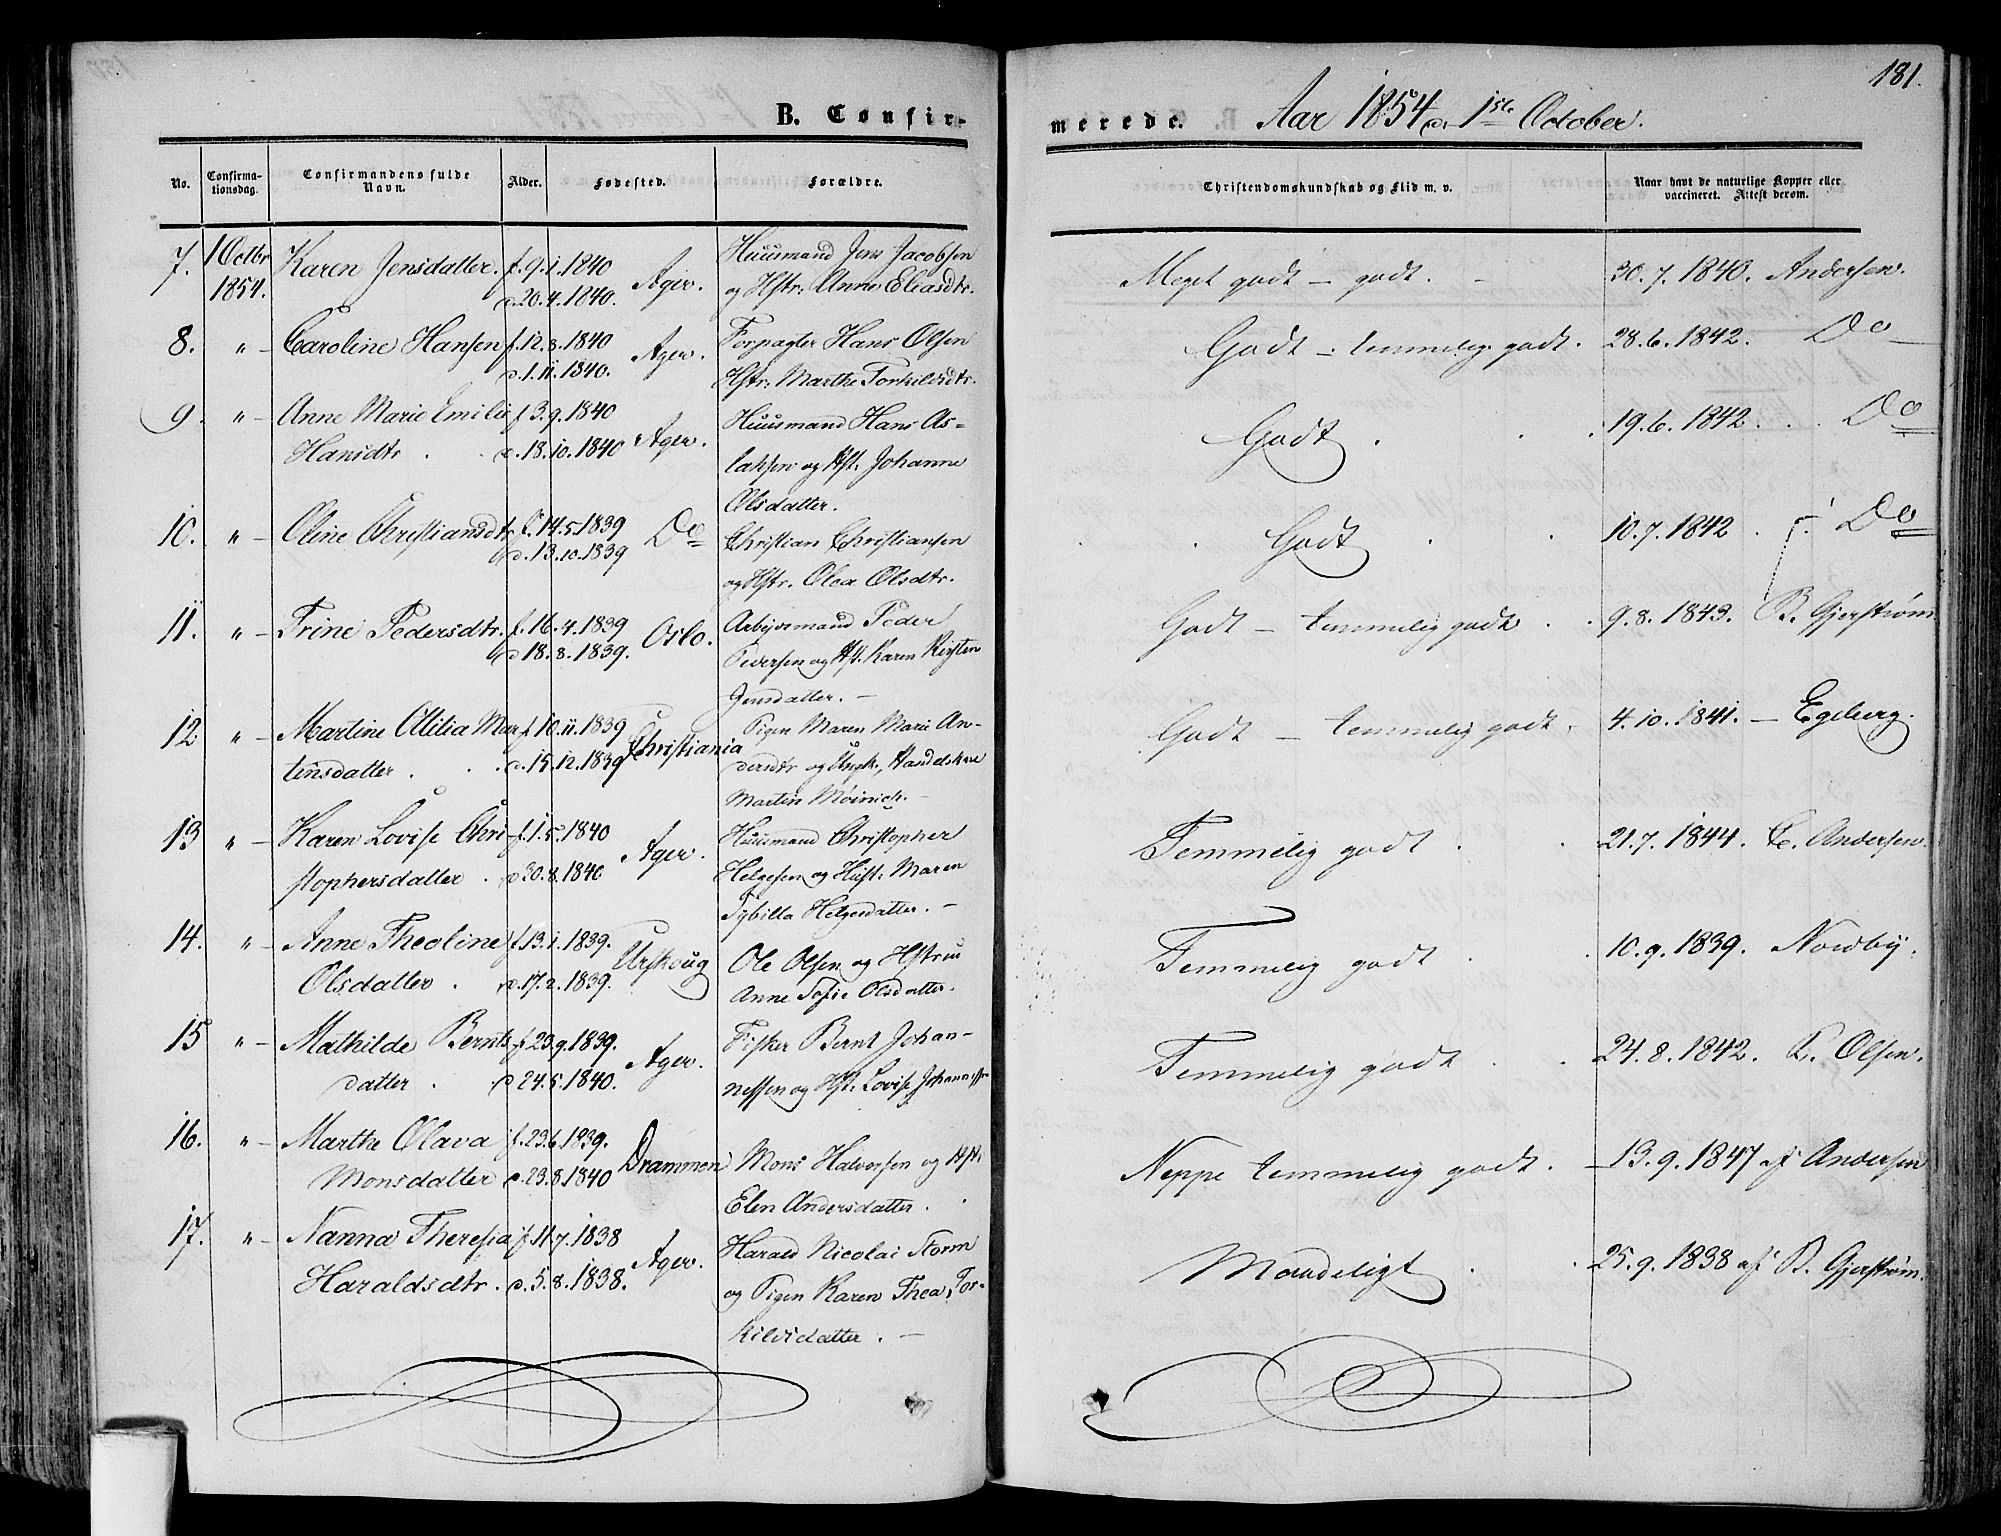 181.
B. Confir-
merede. Aar 1854 d. 1ste October.
No.
Confirma-
tionsdag.
Confirmandens fulde
Navn.
Alder.
Fødested.
Forældre.
Christendomskundskab og Flid m. v.
Naar havt de naturlige Kopper eller
vaccineret. Attest derom.
7. 1 Octbr Karen Jensdatter. f. 9.1.1840 Huusmand Jens Jacobsen
1854. d. 20.4.1840. Ager. og Hstr: Anne Eliasdtr.
Meget godt – godt. 30.7.1840. Andersen.
8. " – Caroline Hansen f. 12.8.1840 Ager. Forpagter Hans Olsen
d. 1.11.1840. Hstr: Marthe Torkildsdtr.
Godt – temmelig godt. 28.6.1842. Do
9. " – Anne Marie Emilie f. 3.9.1840 Huusmand Hans As-
Hansdtr . d. 18.10.1840 Ager. laksen og Hst. Johanne
Olsdatter.
Godt . 19.6.1842. Do
10. " – Oline Christiansdtr f. 14.5.1839 Do Christian Christiansen
d. 13.10.1839 og Hstr. Olea Olsdtr.
Godt 10.7.1842 . Do
11. " – Trine Pedersdtr. f. 16.4.1839 Oslo. Arbejdsmand Peder
d. 18.8.1839. Pedersen og Hst. Karen Kirsten
Jensdatter. –
Godt – temmelig godt . 9.8.1843. B. Gjerstrøm
12 " – Martine Otilia Mar- f. 10.11.1839 Christiania Pigen Maren Marie An-
tinsdatter . d. 15.12.1839 dersdtr og Ungk., Handelskar
Martin Møinich. –
Godt – temmelig godt . 4.10.1841. – Egeberg.
13 " – Karen Lovise Chri- f. 1.5.1840 Ager. Huusmand Christopher
stophersdatter . d. 30.8.1840 Helgesen og Hust: Maren
Sybilla Helgesdatter. –
Temmelig godt . 21.7.1844. C. Andersen
14. " – Anne Theoline f. 13.1.1839. Urskoug Ole Olsen og Hstru
Olsdatter . d. 17.2.1839. Anne Sofie Olsdatter.
Temmelig godt . 10.9.1839. Nordby.
15 " – Mathilde Bernts- f. 23.9.1839. Ager. Fisker Bernt Johan-
datter . d. 24.5.1840. nessen og Hst. Lovise Johannessdr
Temmelig godt . 24.8.1842. R. Olsen.
16. " – Marthe Olava f. 23.6.1839. Drammen Mons Halvorsen og Hst.
Monsdatter d. 23.8.1840 Elen Andersdatter .
Neppe temmelig godt . 13.9.1847 af Andersen
17. " – Nanna Theresia f. 11.7.1838 Ager. Harald Nicolai Storm
Haraldsdtr . d. 5.8.1838. og Pigen Karen Thea Tor-
kildsdatter . –
Maadeligt . 25.9.1838 af B. Gjerstrøm.